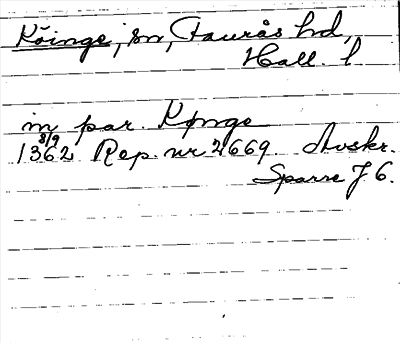 Köinge, sn, Faurås hd,
Hall. l
in par. Kønge
13 8/9 62 Rep. nr 2669. Avskr.
Sparre f 6.